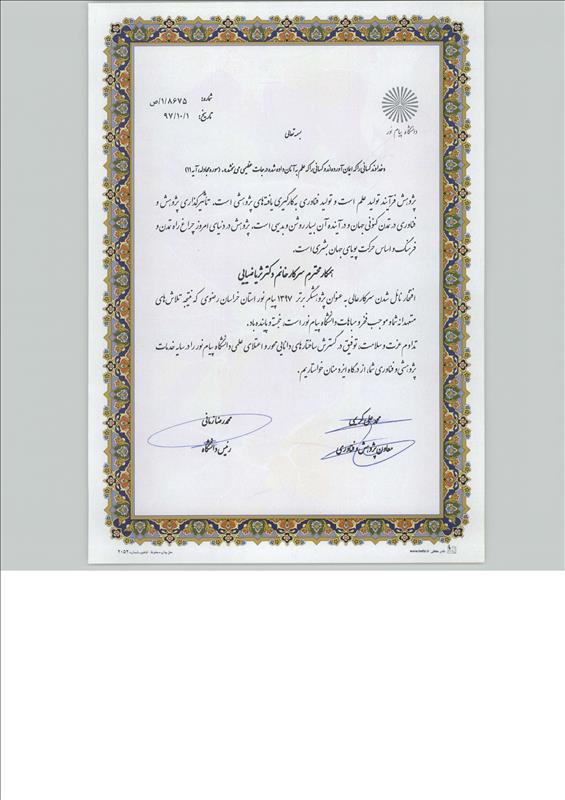 شماره: ۱/۸۶۷۵/ص
تاریخ: ۹۷/۱۰/۱
دانشگاه پیام نور
بسمه تعالی
و خداوند کسانی را که ایمان آورده‌اند و کسانی را که علم به آنان داده شده درجات عظیمی می‌بخشد. (سوره مجادله، آیه ۱۱)
پژوهش فرآیند تولید علم است و تولید فناوری به کارگیری یافته‌های پژوهشی است. تأثیرگذاری پژوهش و
فناوری در تمدن کنونی جهان و در آینده آن بسیار روشن و بدیهی است. پژوهش در دنیای امروز چراغ راه تمدن و
فرهنگ و اساس حرکت پویای جهان بشری است.
همکار محترم سرکار خانم دکتر ثریا ضیایی
افتخار نائل شدن سرکارعالی به عنوان پژوهشگر برتر ۱۳۹۷ پیام نور استان خراسان رضوی که نتیجه تلاش‌های
متعهدانه شما و موجب فخر و مباهات دانشگاه پیام نور است، خجسته و پاینده باد.
تداوم عزت و سلامت، توفیق در گسترش ساختارهای دانایی محور و اعتلای علمی دانشگاه پیام نور را در سایه خدمات
پژوهشی و فناوری شما، از درگاه ایزد منان خواستاریم.
محمدرضا زمانی
رئیس دانشگاه
معاون پژوهش و فناوری